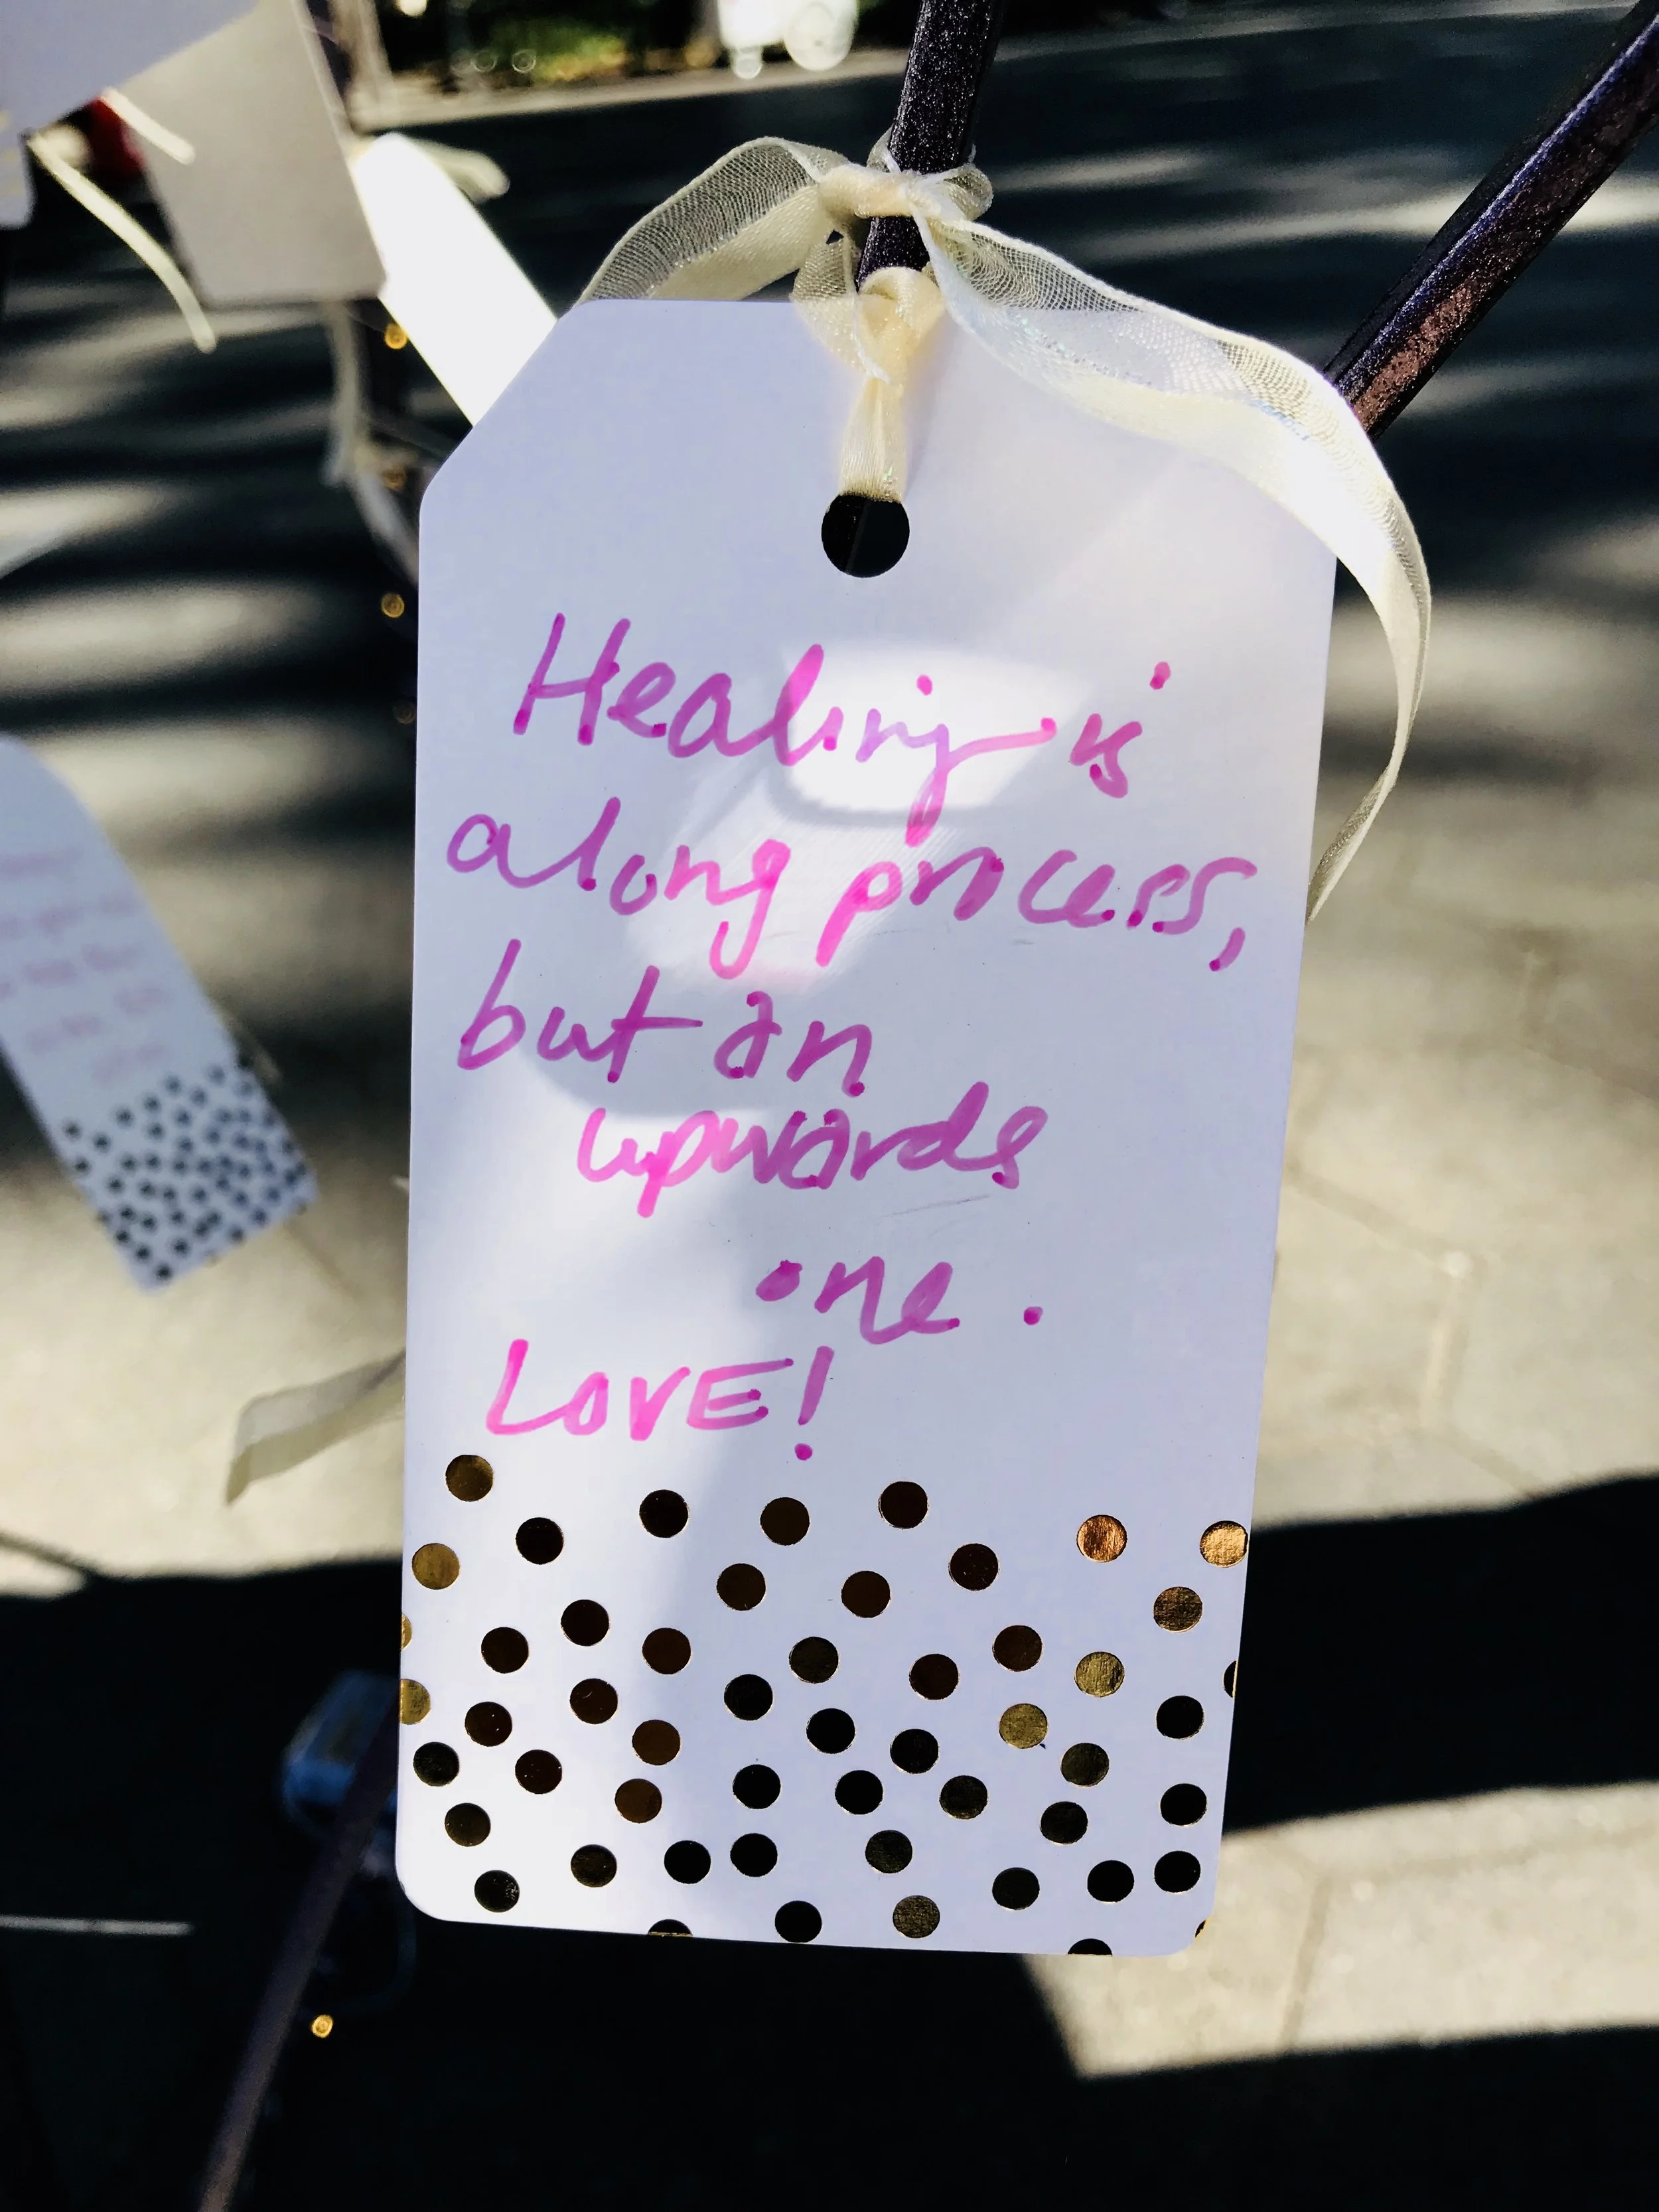 Healing is
along process,
but an
upwards
one.
LOVE!